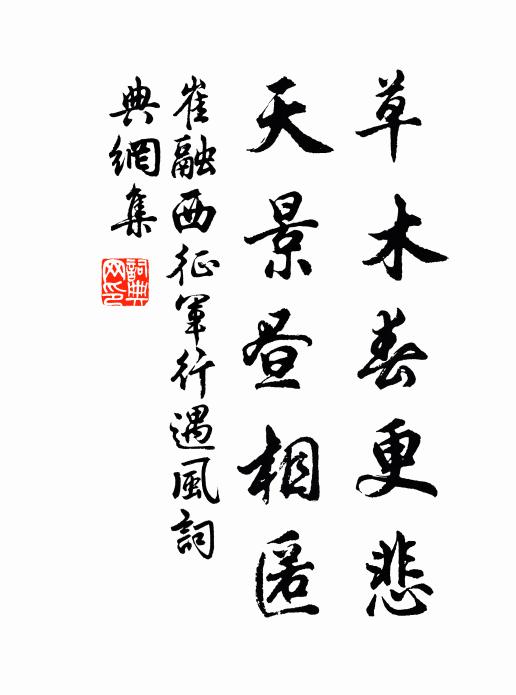 草木春更悲
天景昼相匿
崔融西征軍行遇風詞
典網集
詞典
网印